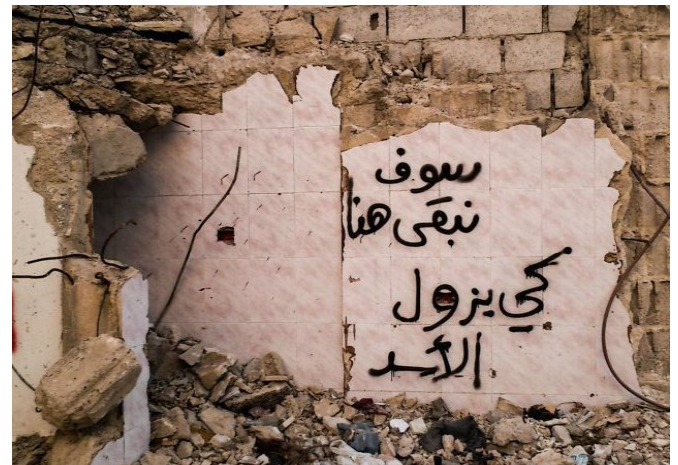 سوف
نبقى هنا
كي يزول
الأسد